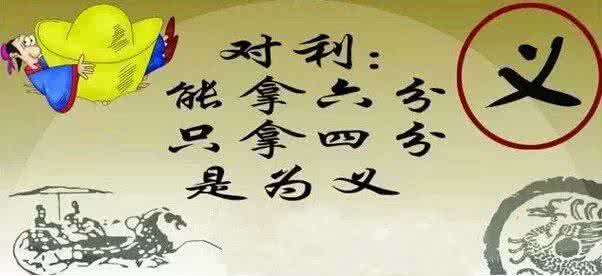 对利：
能拿六分
只拿四分
是为义
义